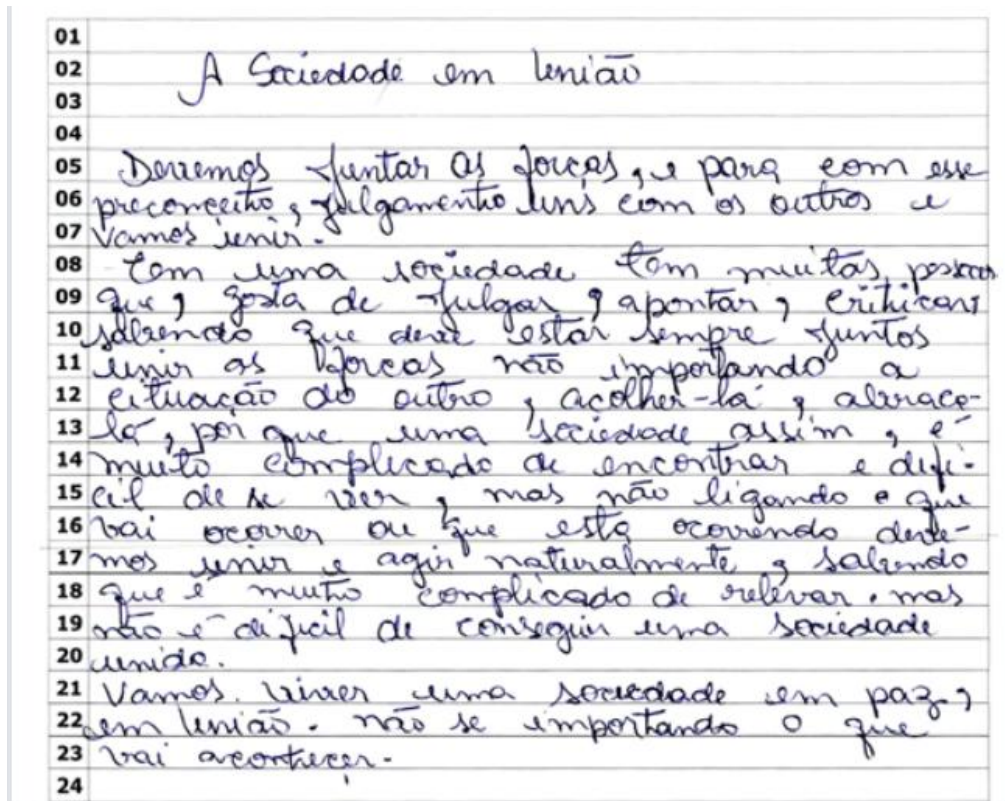 01
02 A Sociedade em União
03
04
05 Devemos juntar as forças, e para com esse
06 preconceito, julgamento uns com os outros e
07 vamos unir.
08 Com uma sociedade tem muitas pessoas
09 que, gosta de julgar, apontar, criticar,
10 sabendo que deve estar sempre juntos
11 unir as forças não importando a
12 cituação do outro, acolher-lá, abraça-
13 lá, por que uma sociedade assim, é
14 muito complicado de encontrar e difi-
15 cil de se ver, mas não ligando o que
16 vai ocorrer ou que está ocorrendo deve-
17 mos unir e agir naturalmente, sabendo
18 que é muito complicado de relevar. mas
19 não é dificil de conseguir uma sociedade
20 unida.
21 Vamos viver uma sociedade em paz,
22 em união. não se importando o que
23 vai acontecer.
24